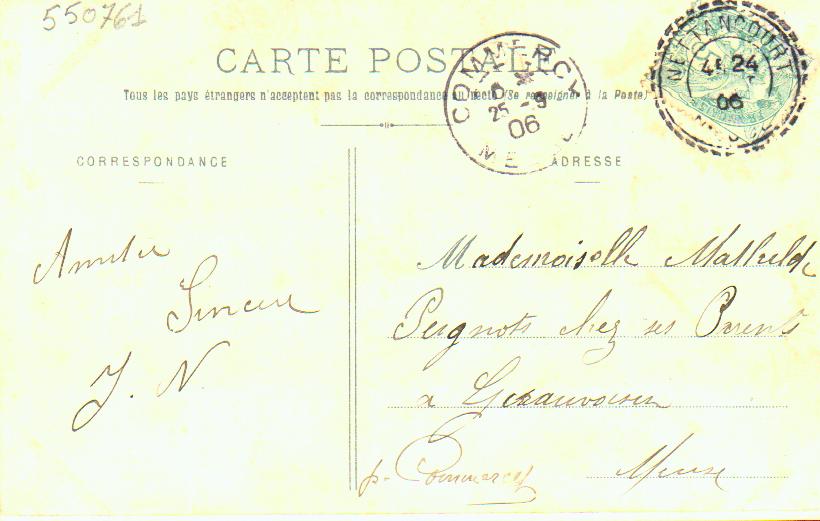 550761
CARTE POSTALE
Tous les pays étrangers n'acceptent pas la correspondance au recto (Se renseigner à la Poste)
COMMERCY
6
25 -9
06
NETTANCOURT
24
06
CORRESPONDANCE
ADRESSE
Amitié
Sincère
J. N.
Mademoiselle Mathilde
Peignots chez ses Parents
a Gérauvoisin
p. Commercy Meuse